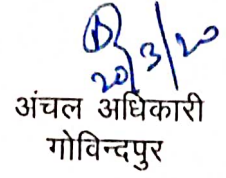 20/3/20
अंचल अधिकारी
गोविन्दपुर